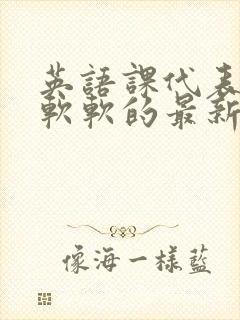 英語課代表
軟軟的最新
像海一樣藍